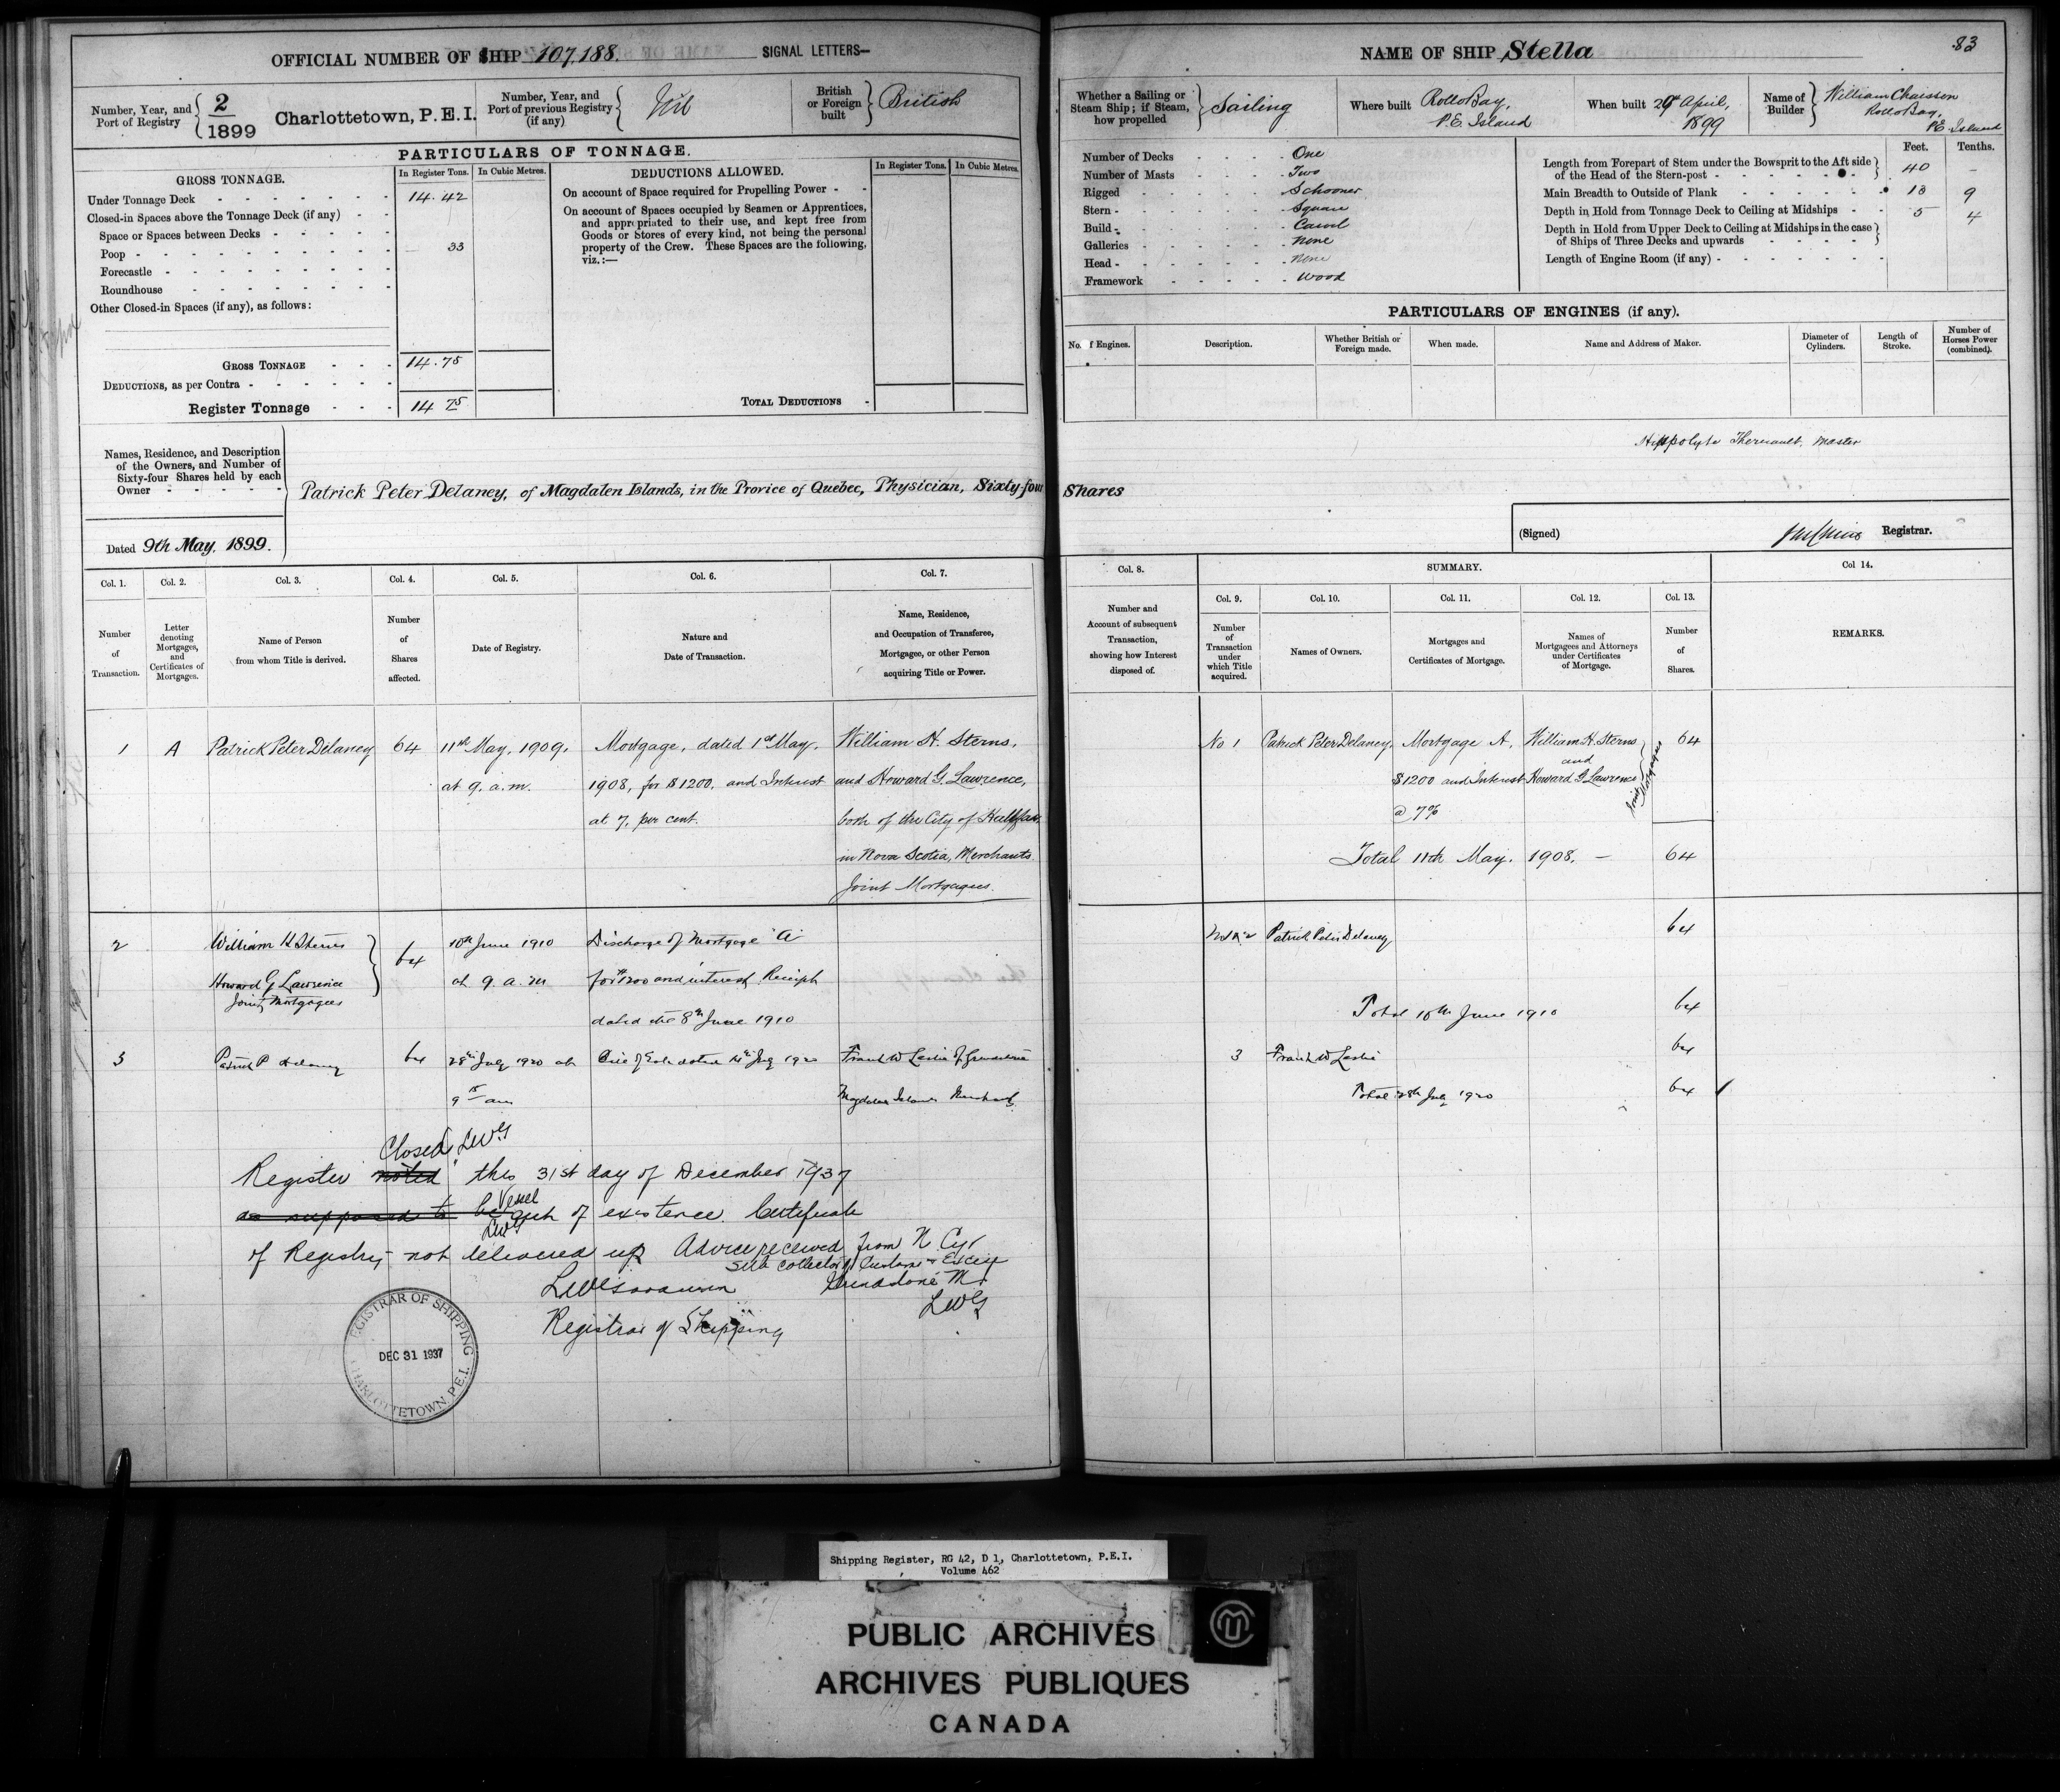 OFFICIAL NUMBER OF SHIP 107,188. SIGNAL LETTERS—
Number, Year, and Port of Registry 2/1899 Charlottetown, P.E.I.
Number, Year, and Port of previous Registry (if any) Nil
British or Foreign built British
PARTICULARS OF TONNAGE.
GROSS TONNAGE. In Register Tons. In Cubic Metres.
Under Tonnage Deck 14.42
Closed-in Spaces above the Tonnage Deck (if any)
Space or Spaces between Decks
Poop 33
Forecastle
Roundhouse
Other Closed-in Spaces (if any), as follows:
GROSS TONNAGE 14.75
DEDUCTIONS, as per Contra
Register Tonnage 14 75
DEDUCTIONS ALLOWED. In Register Tons. In Cubic Metres.
On account of Space required for Propelling Power
On account of Spaces occupied by Seamen or Apprentices,
and appropriated to their use, and kept free from
Goods or Stores of every kind, not being the personal
property of the Crew. These Spaces are the following,
viz.:—
TOTAL DEDUCTIONS
Names, Residence, and Description
of the Owners, and Number of
Sixty-four Shares held by each
Owner
Patrick Peter Delaney, of Magdalen Islands, in the Provice of Quebec, Physician, Sixty-four Shares
Dated 9th May, 1899.
NAME OF SHIP Stella
83
Whether a Sailing or Steam Ship; if Steam, how propelled Sailing
Where built Rollo Bay, P.E. Island
When built 29 April, 1899
Name of Builder William Chaisson Rollo Bay, P.E. Island
Number of Decks One
Number of Masts Two
Rigged Schooner
Stern Square
Build Carvel
Galleries None
Head None
Framework Wood
Feet. Tenths.
Length from Forepart of Stem under the Bowsprit to the Aft side
of the Head of the Stern-post 40 –
Main Breadth to Outside of Plank 13 9
Depth in Hold from Tonnage Deck to Ceiling at Midships 5 4
Depth in Hold from Upper Deck to Ceiling at Midships in the case
of Ships of Three Decks and upwards
Length of Engine Room (if any)
PARTICULARS OF ENGINES (if any).
No. of Engines. Description. Whether British or Foreign made. When made. Name and Address of Maker. Diameter of Cylinders. Length of Stroke. Number of Horses Power (combined).
Hippolyte Theriault, Master
(Signed) Registrar.
Col. 1. Col. 2. Col. 3. Col. 4. Col. 5. Col. 6. Col. 7.
Number of Transaction.
Letter denoting Mortgages, and Certificates of Mortgages.
Name of Person from whom Title is derived.
Number of Shares affected.
Date of Registry.
Nature and Date of Transaction.
Name, Residence, and Occupation of Transferee, Mortgagee, or other Person acquiring Title or Power.
Col. 8. SUMMARY. Col 14.
Col. 9. Col. 10. Col. 11. Col. 12. Col. 13.
Number and Account of subsequent Transaction, showing how Interest disposed of.
Number of Transaction under which Title acquired.
Names of Owners.
Mortgages and Certificates of Mortgage.
Names of Mortgagees and Attorneys under Certificates of Mortgage.
Number of Shares.
REMARKS.
1 A Patrick Peter Delaney 64 11th May, 1909, Mortgage, dated 1st May, William H. Sterns,
at 9. a.m. 1908, for $1200, and Interest and Howard G. Lawrence,
at 7, per cent. both of the City of Halifax
in Nova Scotia, Merchants
Joint Mortgagees.
No 1 Patrick Peter Delaney, Mortgage A, William H. Sterns 64
and
$1200 and Interest Howard G Lawrence
@ 7%
Joint Mortgagees
Total 11th May. 1908. – 64
2 William H Sterns 64 10th June 1910 Discharge of Mortgage "A"
Howard G Lawrence at 9. a. m for $1200 and interest Receipt
Joint Mortgagees
dated the 8th June 1910
Patrick Peter Delaney 64
Total 10th June 1910 64
3 Patrick P Delaney 64 28th July 1920 at Bill of Sale dated 14th July 1920 Frank W Leslie of Grindstone
9 15 am Magdalen Islands Merchant
3 Frank W Leslie 64
Total 28th July 1920 64
Closed LWG
Register noted this 31st day of December 1937
as supposed to be Vessel out of existence. Certificate
LWG
of Registry not delivered up Advice received from N Cyr
Sub Collector of Customs & Excise
Grindstone M.
LWG
Registrar of Shipping
REGISTRAR OF SHIPPING
DEC 31 1937
CHARLOTTETOWN, P.E.I.
Shipping Register, RG 42, D 1, Charlottetown, P.E.I.
Volume 462
PUBLIC ARCHIVES
ARCHIVES PUBLIQUES
CANADA